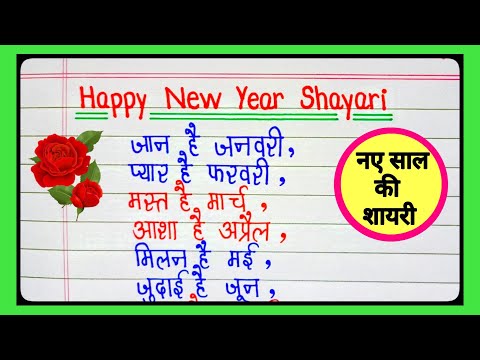 Happy New Year Shayari
जान है जनवरी,
प्यार है फरवरी,
मस्त है मार्च,
आशा है अप्रैल,
मिलन है मई,
जुदाई है जून,
नए साल
की
शायरी